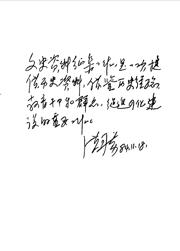 文史资料征集工作，是一项提
供历史资料，借鉴历史经验
教育干部群众，促进四化建
设的重要工作。
84.11.18.